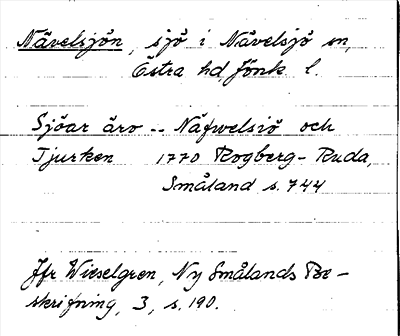 Nävelsjön, sjö i Nävelsjö sn,
Östra hd, Jönk. l.
Sjöar äro -- Näfwelsiö och
Tjurken 1770 Rogberg-Ruda,
Småland s. 744
Jfr Wieselgren, Ny Smålands Be-
skrifning, 3, s. 190.